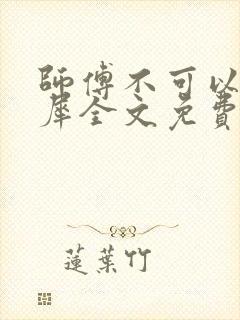 師傅不可以
犀全文免費
蓮葉竹